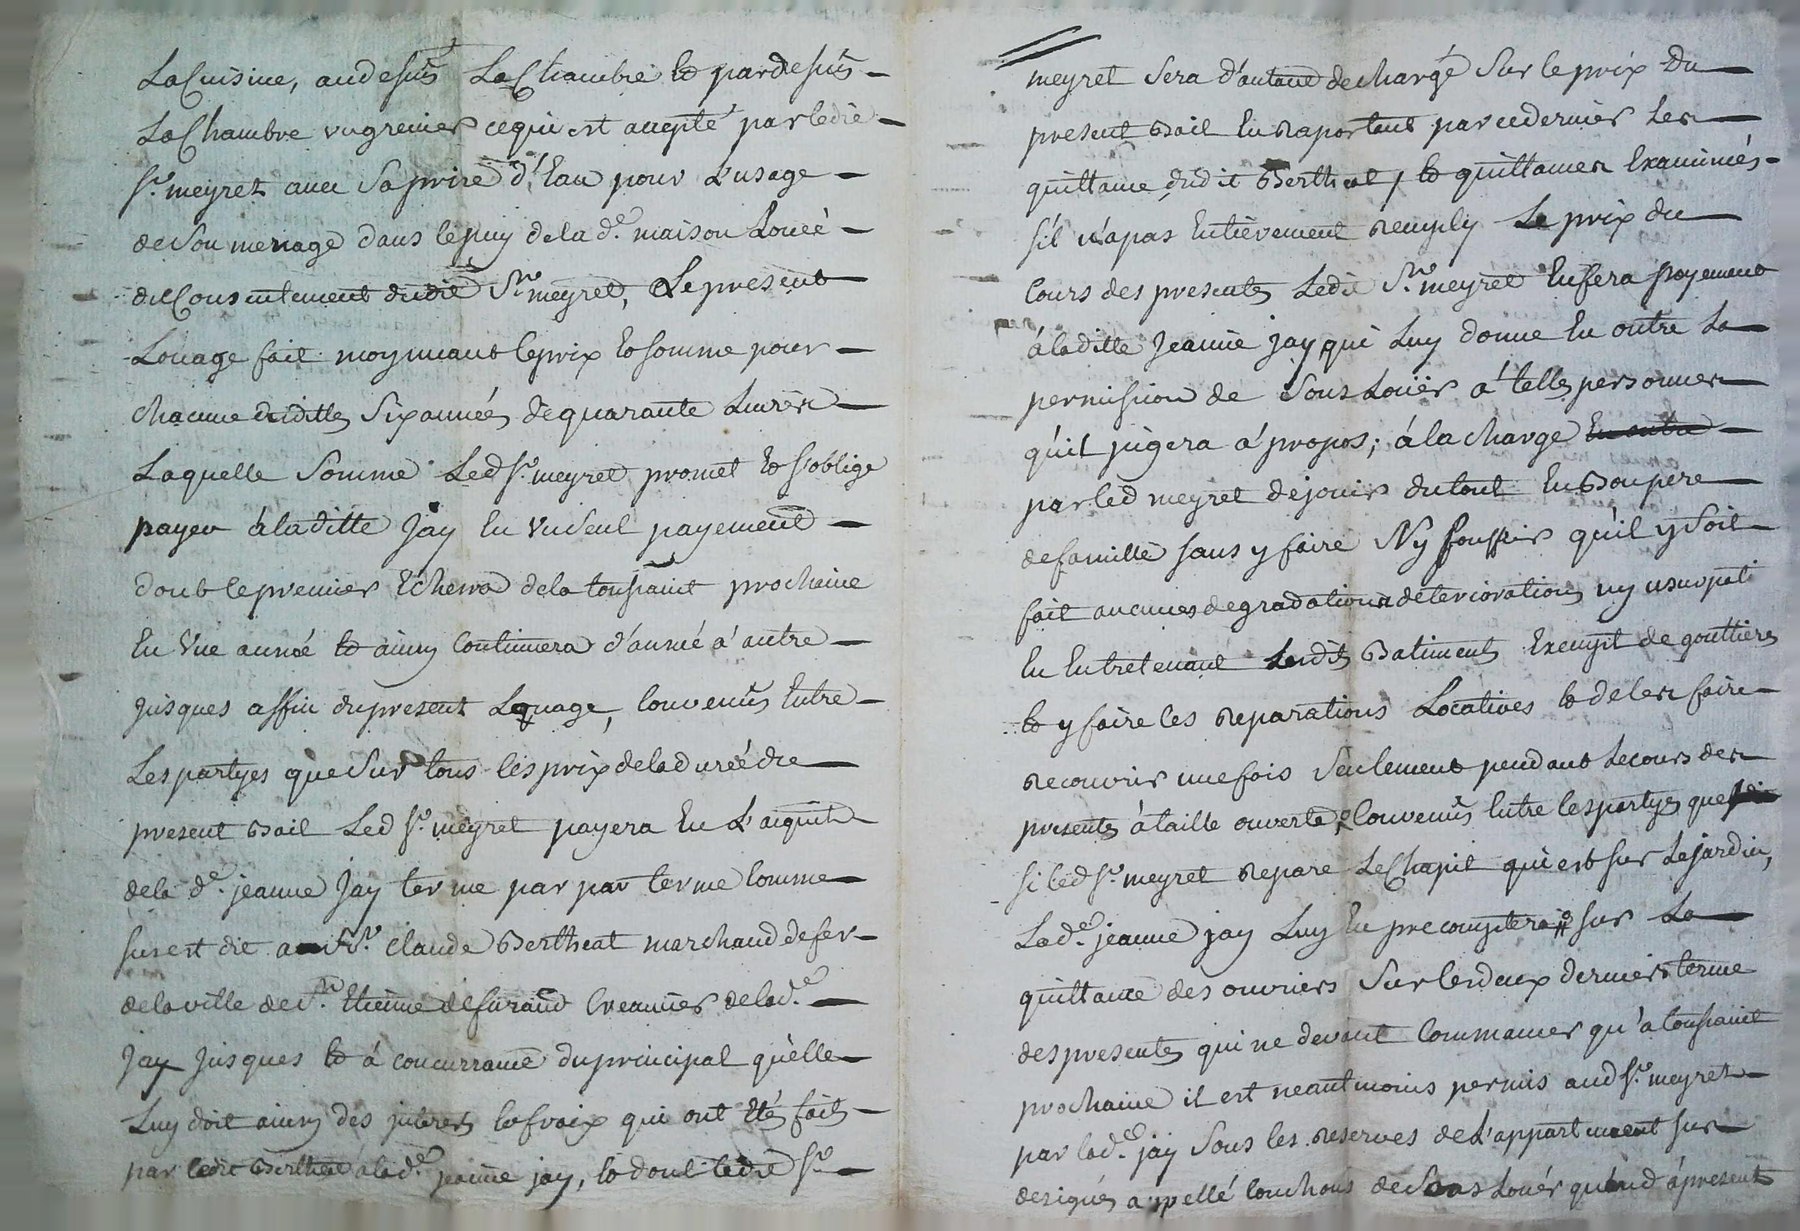 La Cuisine, audessus La Chambre et pardessus
La Chambre un grenier cequi est accepté par ledit
Sr. meyret avec sa prise d'Eau pour L'usage
de son menage dans le puy de la de. maison Louéé
du Consentement dudit Sr. meyret, Le present
Louage fait moyennant le prix et somme pour
chacune desdittes six années de quarante Livres
Laquelle somme Led Sr. meyret promet et s'oblige
payer á laditte Jay En un seul payement
dont le premier Echerra de la toussaint prochaine
En Une année et ainsy Continuera d'année a' autre
jusques affin du present Louage, Convenus Entre
Les partyes que sur tous les prix de la durée du
present Bail Led Sr. meyret payera En L'aquit
de la de. jeanne Jay terme par par terme Comme
sus est dit au Sr. Claude Bertheat marchand de fer
de la ville de St. Etienne de furand Creancier de lad.e
Jay jusques et á concurrance du principal qu'elle
Luy doit ainsy des interets et fraix qui ont Eté faits
par ledit Bertheat a lad.e jeanne jay, et dont ledit Sr.
meyret sera d'autant dechargé sur le prix du
present Bail En Raportant par ce dernier Les
quittance dudit Bertheat, et quittances Examinés
s'il n'a pas Entierement Remply Le prix du
Cours des presentes Ledit Sr. meyret En fera payement
á laditte Jeanne jay qui Luy donne En outre La
permission de sous Loüer a' telles personnes
qu'il jugera a' propos; á la charge En outre
par led meyret de jouir du tout En Bon pere
de famille sans y faire Ny souffrir qu'il y soit
fait aucunes degradations deteriorations ny usurpati
En Entretenant Lesdits Batiments Exempt de gouttieres
et y faire les Reparations Locatives et de les faire
recouvrir une fois seulement pendant Le cours des
presentes á taille ouverte, Convenus Entre les partyes que
si led Sr. meyret repare Le Chapit qui est sur Le jardin,
La de. jeanne jay Luy En precomptera sur La
quittance des ouvriers sur les deux derniers terme
des presentes qui ne devant Commancer qu'a toussaint
prochaine il est neantmoins permis aud Sr. meyret
par lad.e jay sous les reserves de L'appartement sus
designés appellé Couchons de sous Louér quand á present